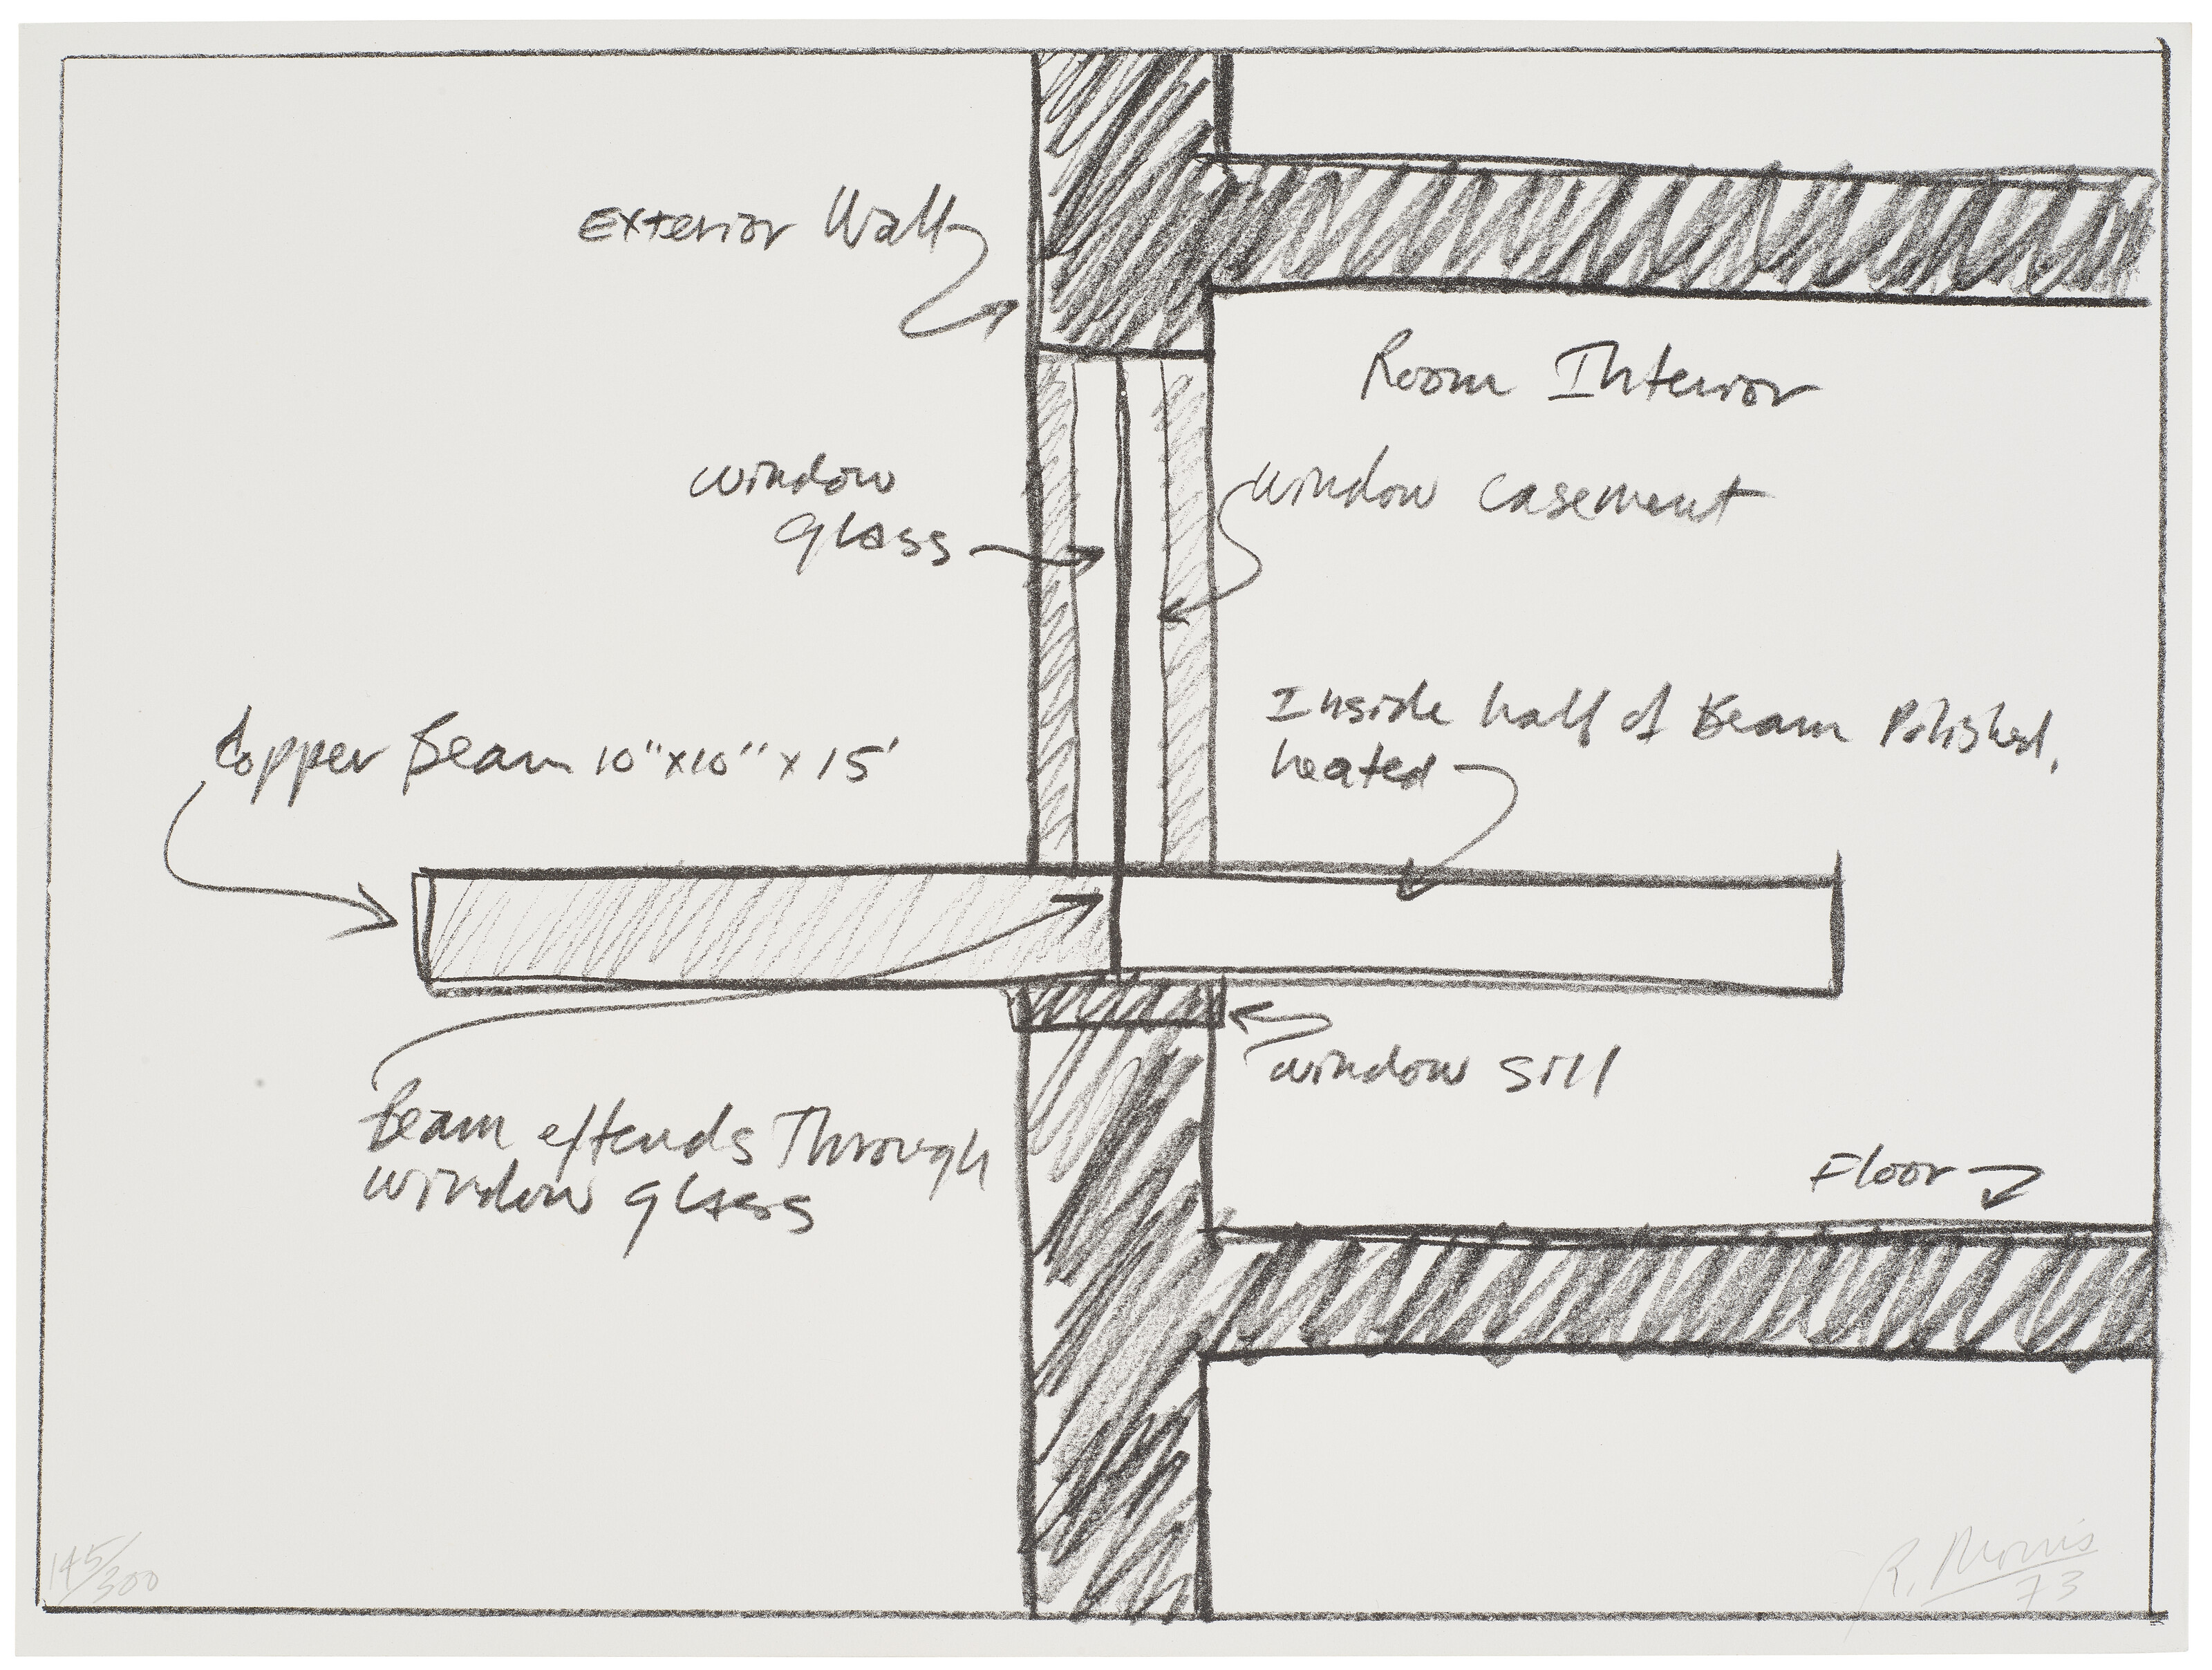 Exterior Wall
Room Interior
window
glass
window casement
Inside half of Beam Polished,
heated
Copper Beam 10"x10" x 15'
window sill
Beam extends Through
window glass
Floor
145/300
R. Morris
73